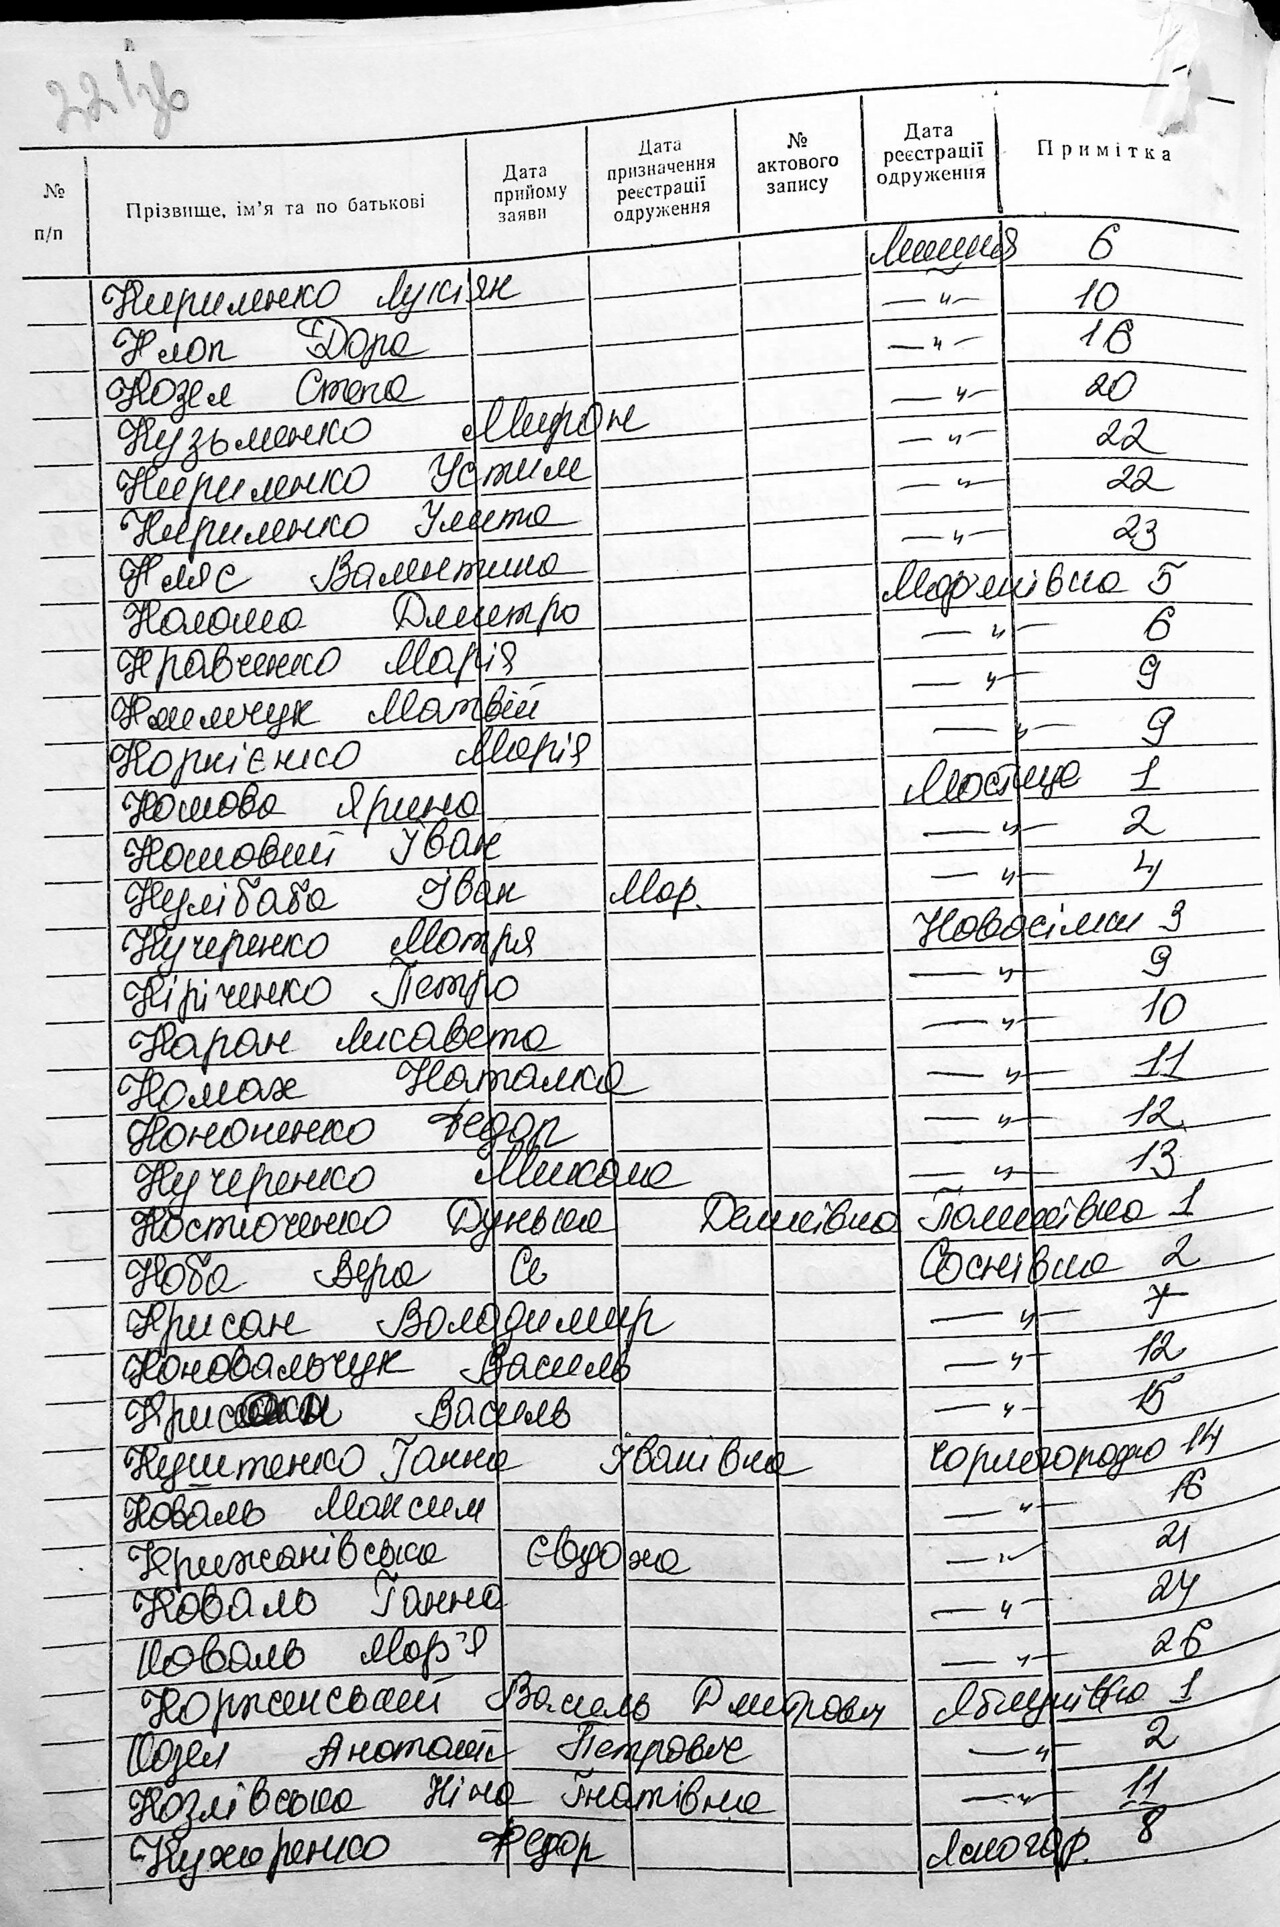 221зв
№ п/п Прізвище, ім'я та по батькові Дата прийому заяви Дата призначення реєстрації одруження № актового запису Дата реєстрації одруження Примітка
Кириленко Лукіян 6
Клоп Дора —"— 10
Козел Степа —"— 16
Кузьменко Мирон —"— 20
Кириленко Устим —"— 22
Кириленко Улита —"— 22
Кляс Валентина —"— 23
Колома Дмитро Мар'янівка 5
Кравченко Марія —"— 6
Матвій —"— 9
Корнієнко Марія —"— 9
Комова Ярина Мостище 1
Комовий Іван —"— 2
Кулібаба Іван Мар. —"— 4
Кучеренко Мотря Новосілки 3
Кіріченко Петро —"— 9
Каран Лисавета —"— 10
Комах Наталка —"— 11
Кононенко Федор —"— 12
Кучеренко Микола —"— 13
Костюченко Дунька Демківна 1
Коба Вера Се Соснівка 2
Крисан Володимир —"— 7
Коновальчук Василь —"— 12
Крисан Василь —"— 15
Куштенко Ганна Іванівна Чорногородка 14
Коваль Максим —"— 16
Крижанівська Євдоха —"— 21
Коваль Ганна —"— 24
Коваль Мар'я —"— 26
Коржинський Василь Дмитрович Яблунівка 1
Козел Анатолій Петрович —"— 2
Козлівська Ніна Гнатівна —"— 11
Кухаренко Федор Ясногор. 8